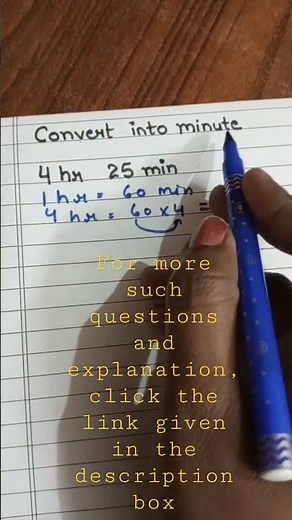 Convert into minute
4 hr 25 min
1 hr = 60 min
4 hr = 60 x 4 =
For more
such
questions
and
explanation,
click the
link given
in the
description
box